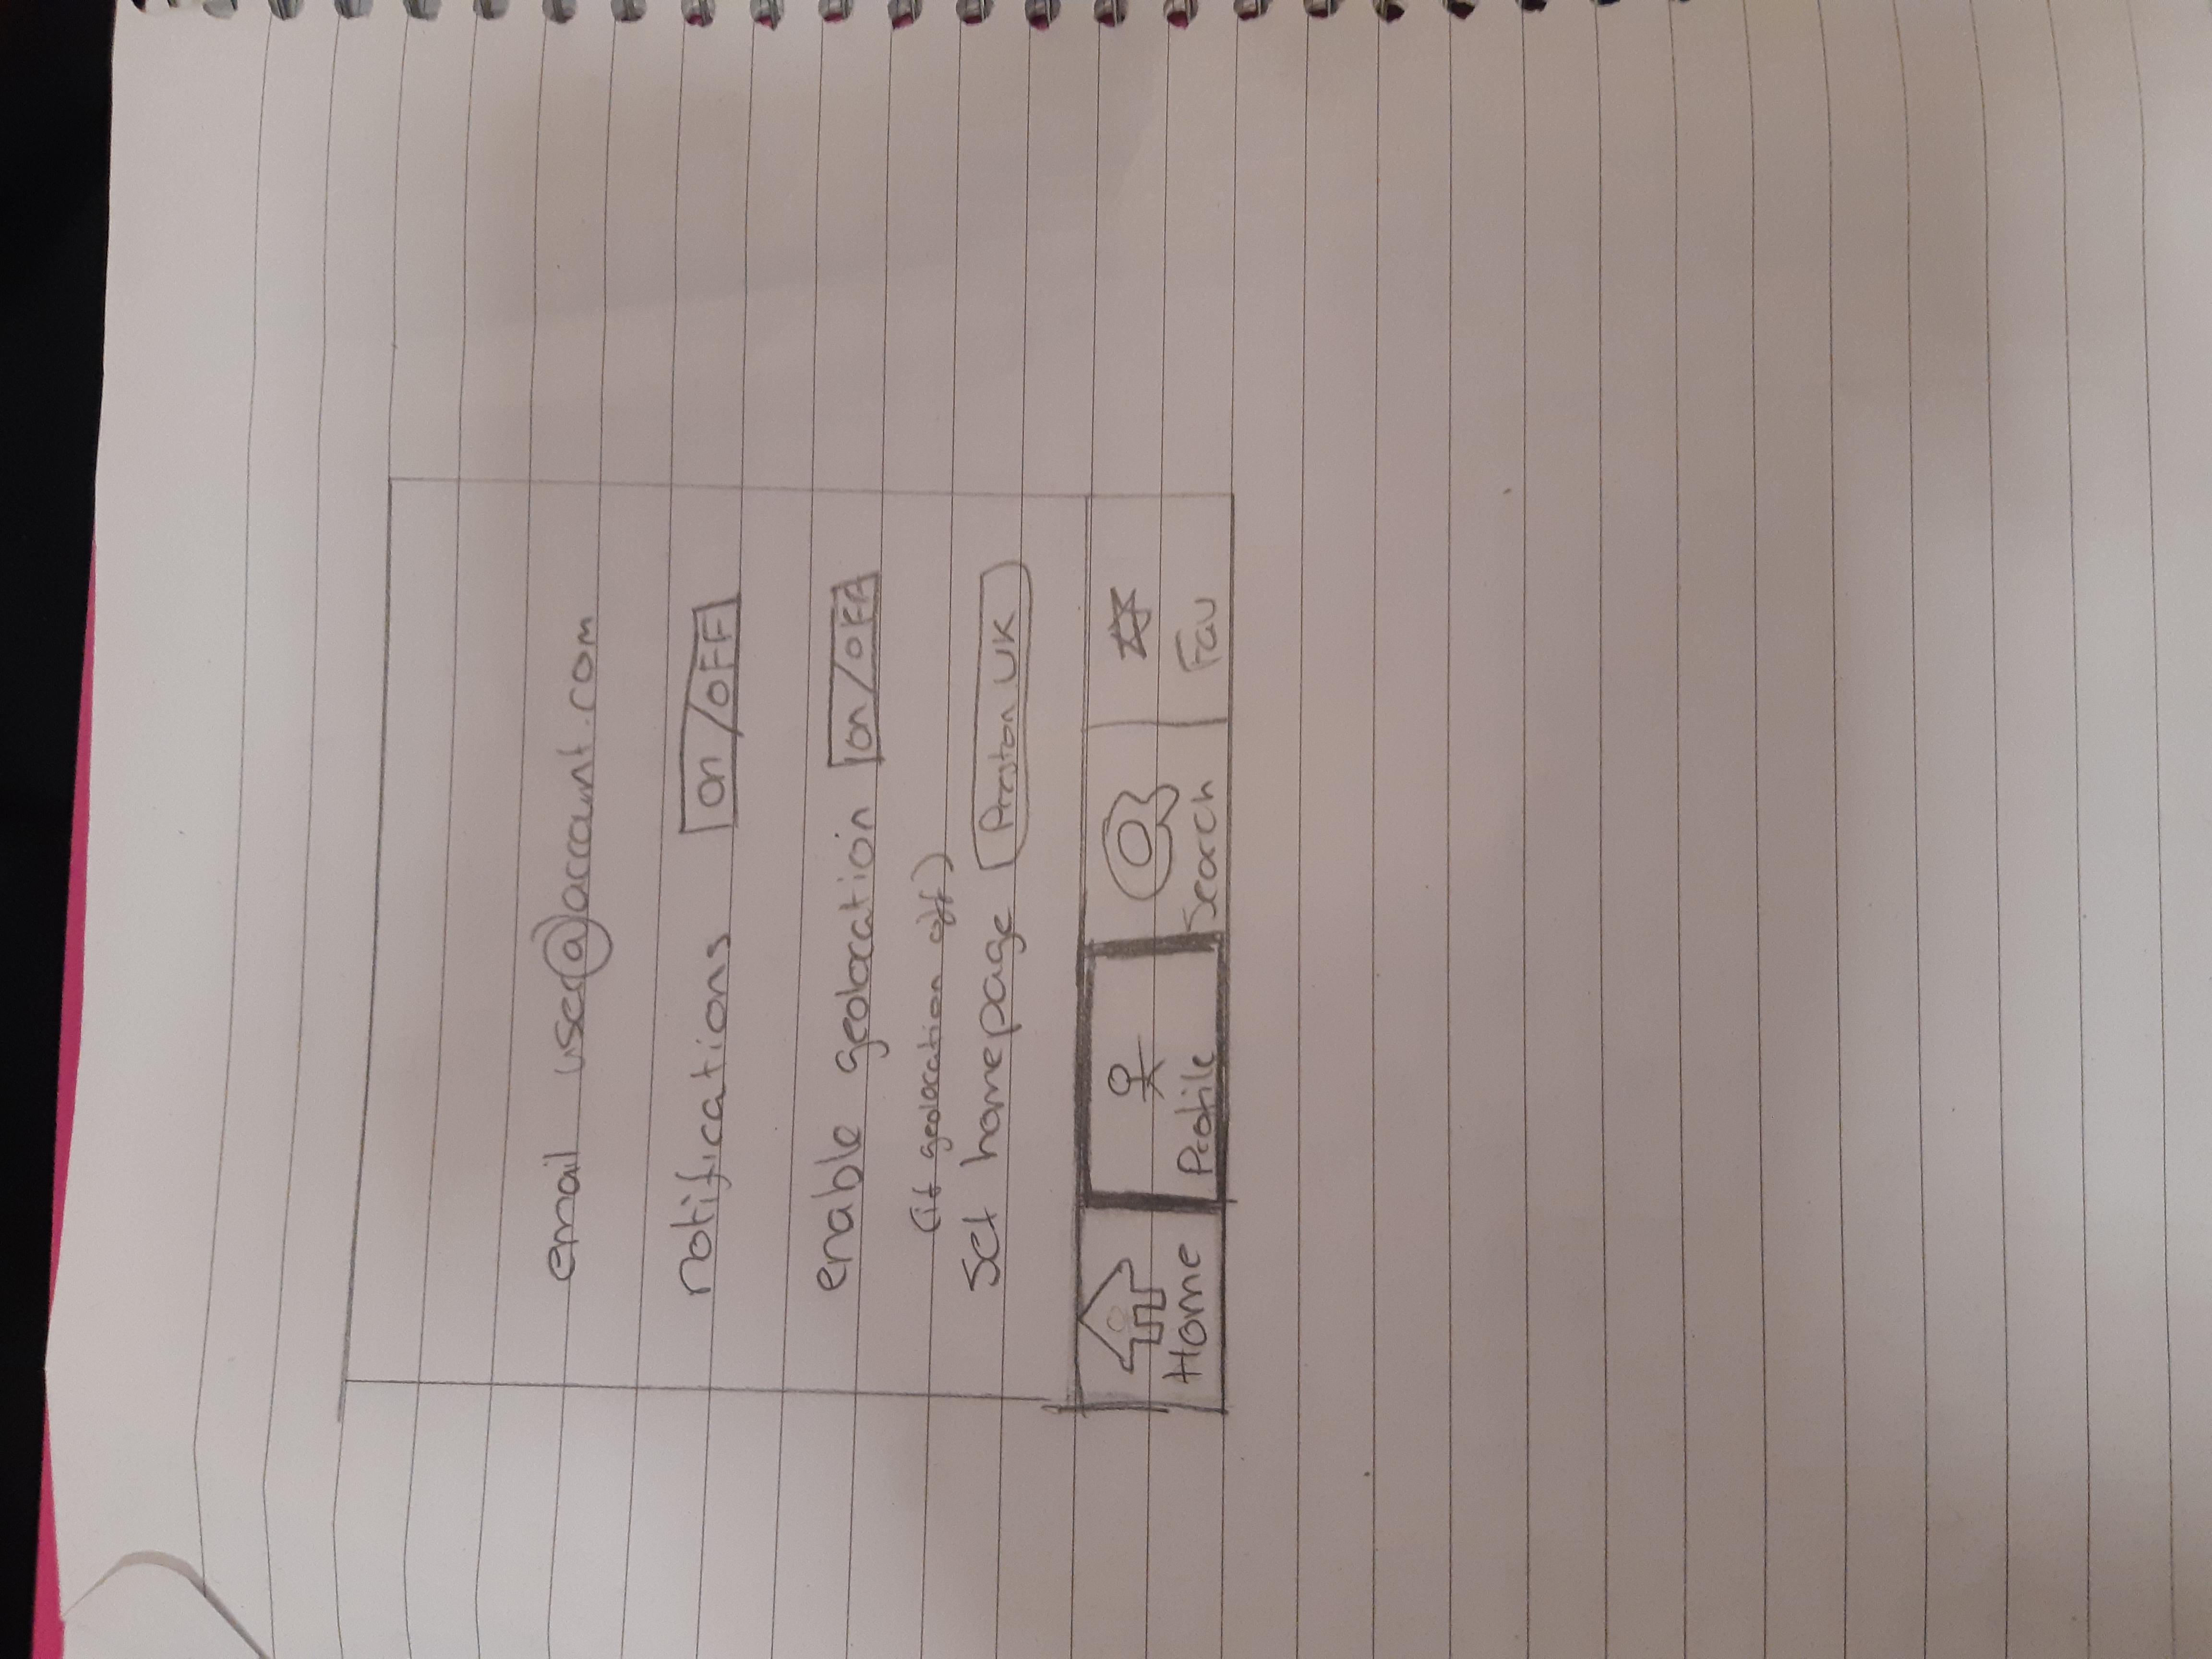 email user@account.com
notifications on/OFF
enable geolocation on/OFF
(if geolocation off)
set homepage Preston UK
Home Profile Search Fav